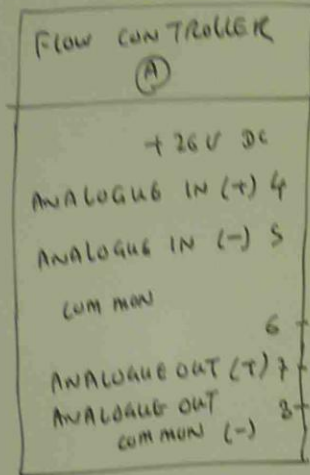 FLOW CONTROLLER
A
+ 26V DC
ANALOGUE IN (+) 4
ANALOGUE IN (-) 5
COMMON
6
ANALOGUE OUT (+) 7
ANALOGUE OUT 8
COMMON (-)